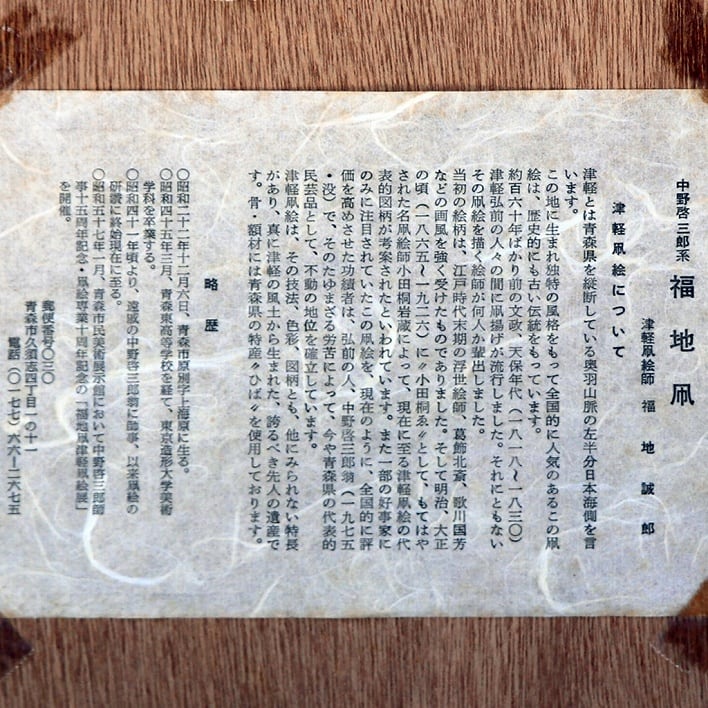 中野啓三郎系 福地凧
津軽凧絵師 福地誠郎
津軽凧絵について
津軽とは青森県を縦断している奥羽山脈の左半分日本海側を言
います。
この地に生まれ独特の風格をもって全国的に人気のあるこの凧
絵は、歴史的にも古い伝統をもっています。
約百六十年ばかり前の文政、天保年代（一八一八〜一八三〇）
津軽弘前の人々の間に凧揚げが流行しました。それにともない
その凧絵を描く絵師が何人か輩出しました。
当初の絵柄は、江戸時代末期の浮世絵師、葛飾北斎、歌川国芳
などの画風を強く受けたものでありました。そして明治、大正
の頃（一八六五〜一九二六）に〝小田桐ゑ〟として、もてはや
された名凧絵師小田桐岩蔵によって、現在に至る津軽凧絵の代
表的図柄が考案されたといわれています。また一部の好事家に
のみに注目されていたこの凧絵を、現在のように、全国的に評
価を高めさせた功績者は、弘前の人、中野啓三郎翁（一九七五
・没）で、そのたゆまざる労苦によって、今や青森県の代表的
民芸品として、不動の地位を確立しています。
津軽凧絵は、その技法、色彩、図柄とも、他にみられない特長
があり、真に津軽の風土から生まれた、誇るべき先人の遺産で
す。骨・額材には青森県の特産〝ひば〟を使用しております。
略歴
○昭和二十二年十二月六日、青森市原別字上海原に生る。
○昭和四十五年三月、青森東高等学校を経て、東京造形大学美術
学科を卒業する。
○昭和四十一年頃より、遠戚の中野啓三郎翁に師事、以来凧絵の
研讃に終始現在に至る。
○昭和五十七年一月、青森市民美術展示館において中野啓三郎師
事十五周年記念・凧絵専業十周年記念の「福地凧津軽凧絵展」
を開催。
郵便番号〇三〇
青森市久須志四丁目一の十一
電話（〇一七七）六六ー二六七五